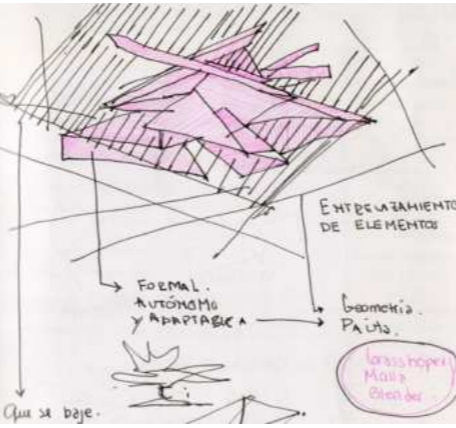 ENTRELAZAMIENTO
DE ELEMENTOS
FORMAL.
AUTÓNOMO
Y ADAPTABLE A
Geometría.
Pauta.
Grasshoper
Malla
Blender
Que se baje.